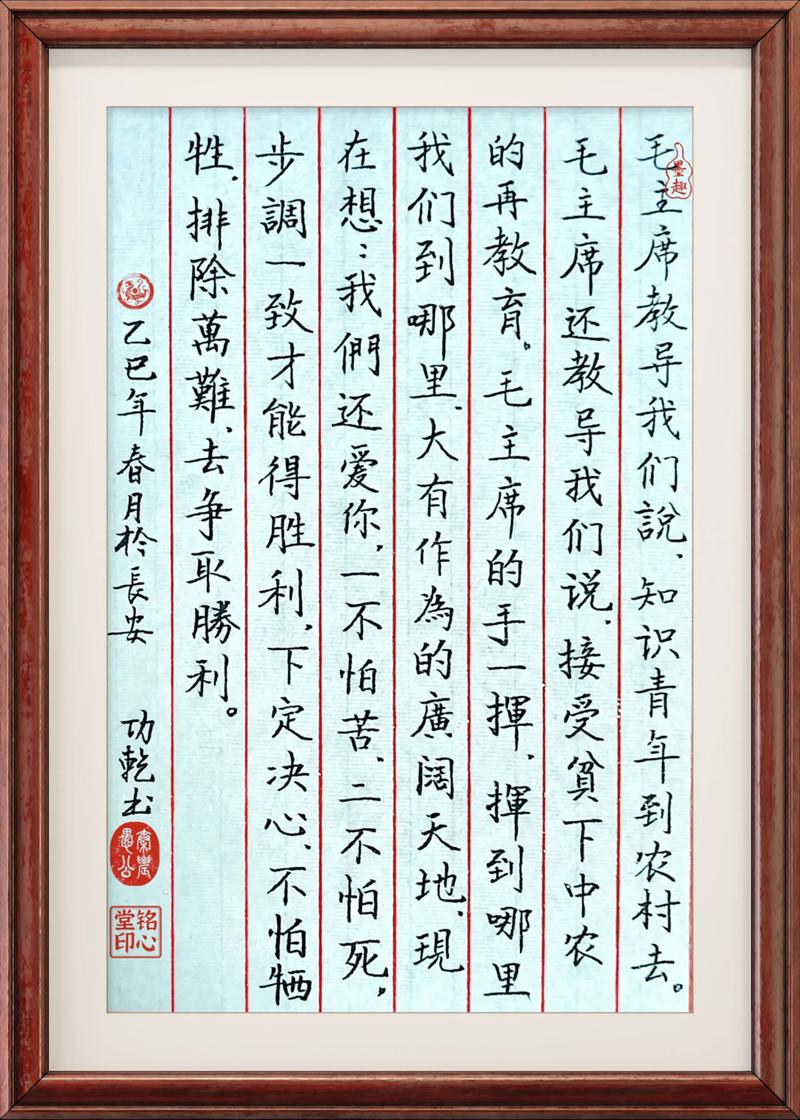 墨趣
毛主席教导我们說、知识青年到农村去。
毛主席还教导我们说、接受貧下中农
的再教育。毛主席的手一揮、揮到哪里
我们到哪里、大有作為的廣阔天地、現
在想：我們还爱你，一不怕苦、二不怕死，
步調一致才能得胜利，下定决心、不怕牺
牲、排除萬難、去争取勝利。
乙巳年春月於長安 功乾书
铭心堂印